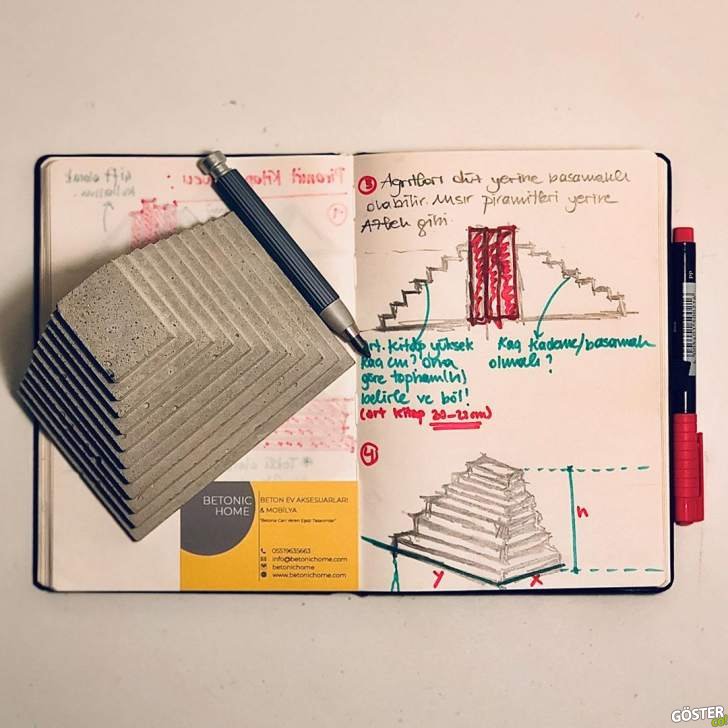 Piramit Kitap
Çift olarak
③ Açıları düz yerine basamaklı
olabilir. Mısır piramitleri yerine
Aztek gibi.
ort. kitap yüksek
kaç cm? ona
göre toplam(h)
belirle ve böl!
(ort kitap 20-22cm)
Kaç kademe/basamak
olmalı?
④
h
y
x
BETONIC
HOME
BETON EV AKSESUARLARI
& MOBİLYA
"Betona Can Veren Eşsiz Tasarımlar"
05519635663
info@betonichome.com
betonichome
www.betonichome.com
GÖSTER